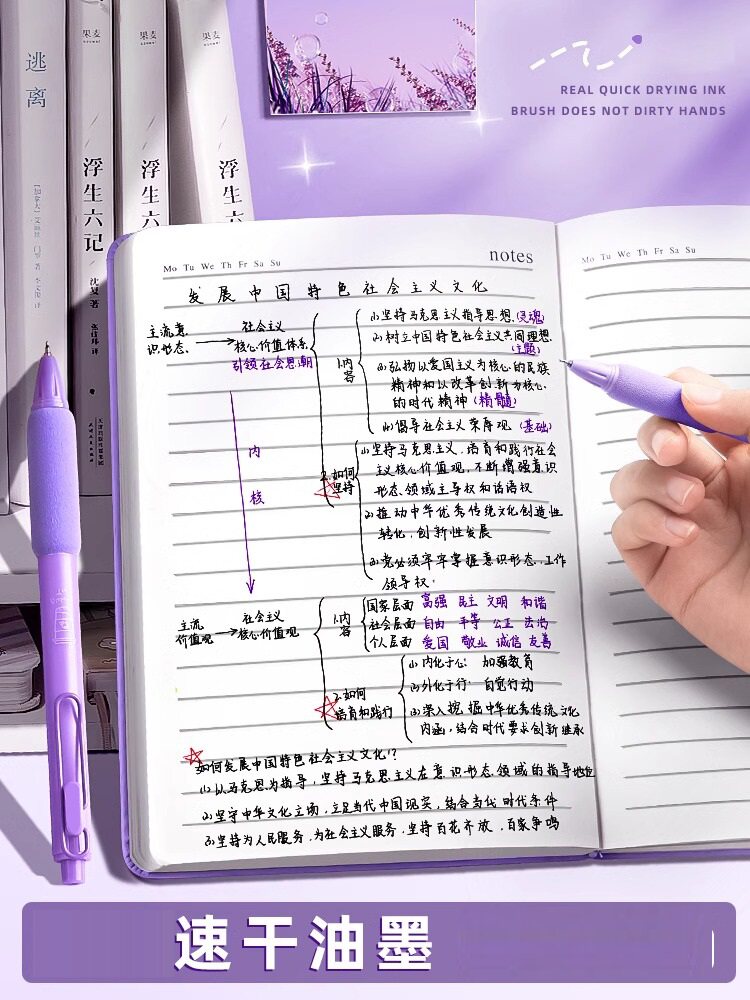 REAL QUICK DRYING INK
BRUSH DOES NOT DIRTY HANDS
果麦
果麦
果麦
逃离
浮生六记
沈复 著
张佳玮 译
浮生六
浮生六
Mo Tu We Th Fr Sa Su
notes
Mo Tu We Th Fr Sa Su
发展中国特色社会主义文化
主流意识形态
社会主义核心价值体系
引领社会思潮
1.内容
(1)坚持马克思主义指导思想(灵魂)
(2)树立中国特色社会主义共同理想
(主题)
(3)弘扬以爱国主义为核心的民族
精神和以改革创新为核心
的时代精神(精髓)
(4)倡导社会主义荣辱观(基础)
2.如何坚持
(1)坚持马克思主义,培育和践行社会
主义核心价值观,不断增强意识
形态领域主导权和话语权
(2)推动中华优秀传统文化创造性
转化,创新性发展
(3)党必须牢牢掌握意识形态工作
领导权.
内
核
主流价值观
社会主义核心价值观
1.内容
国家层面 富强 民主 文明 和谐
社会层面 自由 平等 公正 法治
个人层面 爱国 敬业 诚信 友善
2.如何培育和践行
(1)内化于心: 加强教育
(2)外化于行: 自觉行动
(3)深入挖掘中华优秀传统文化
内涵,结合时代要求创新继承
如何发展中国特色社会主义文化!?
(1)以马克思为指导,坚持马克思主义在意识形态领域的指导地位
(2)坚守中华文化立场,立足当代中国现实,结合当代时代条件
(3)坚持为人民服务,为社会主义服务,坚持百花齐放,百家争鸣
速干油墨